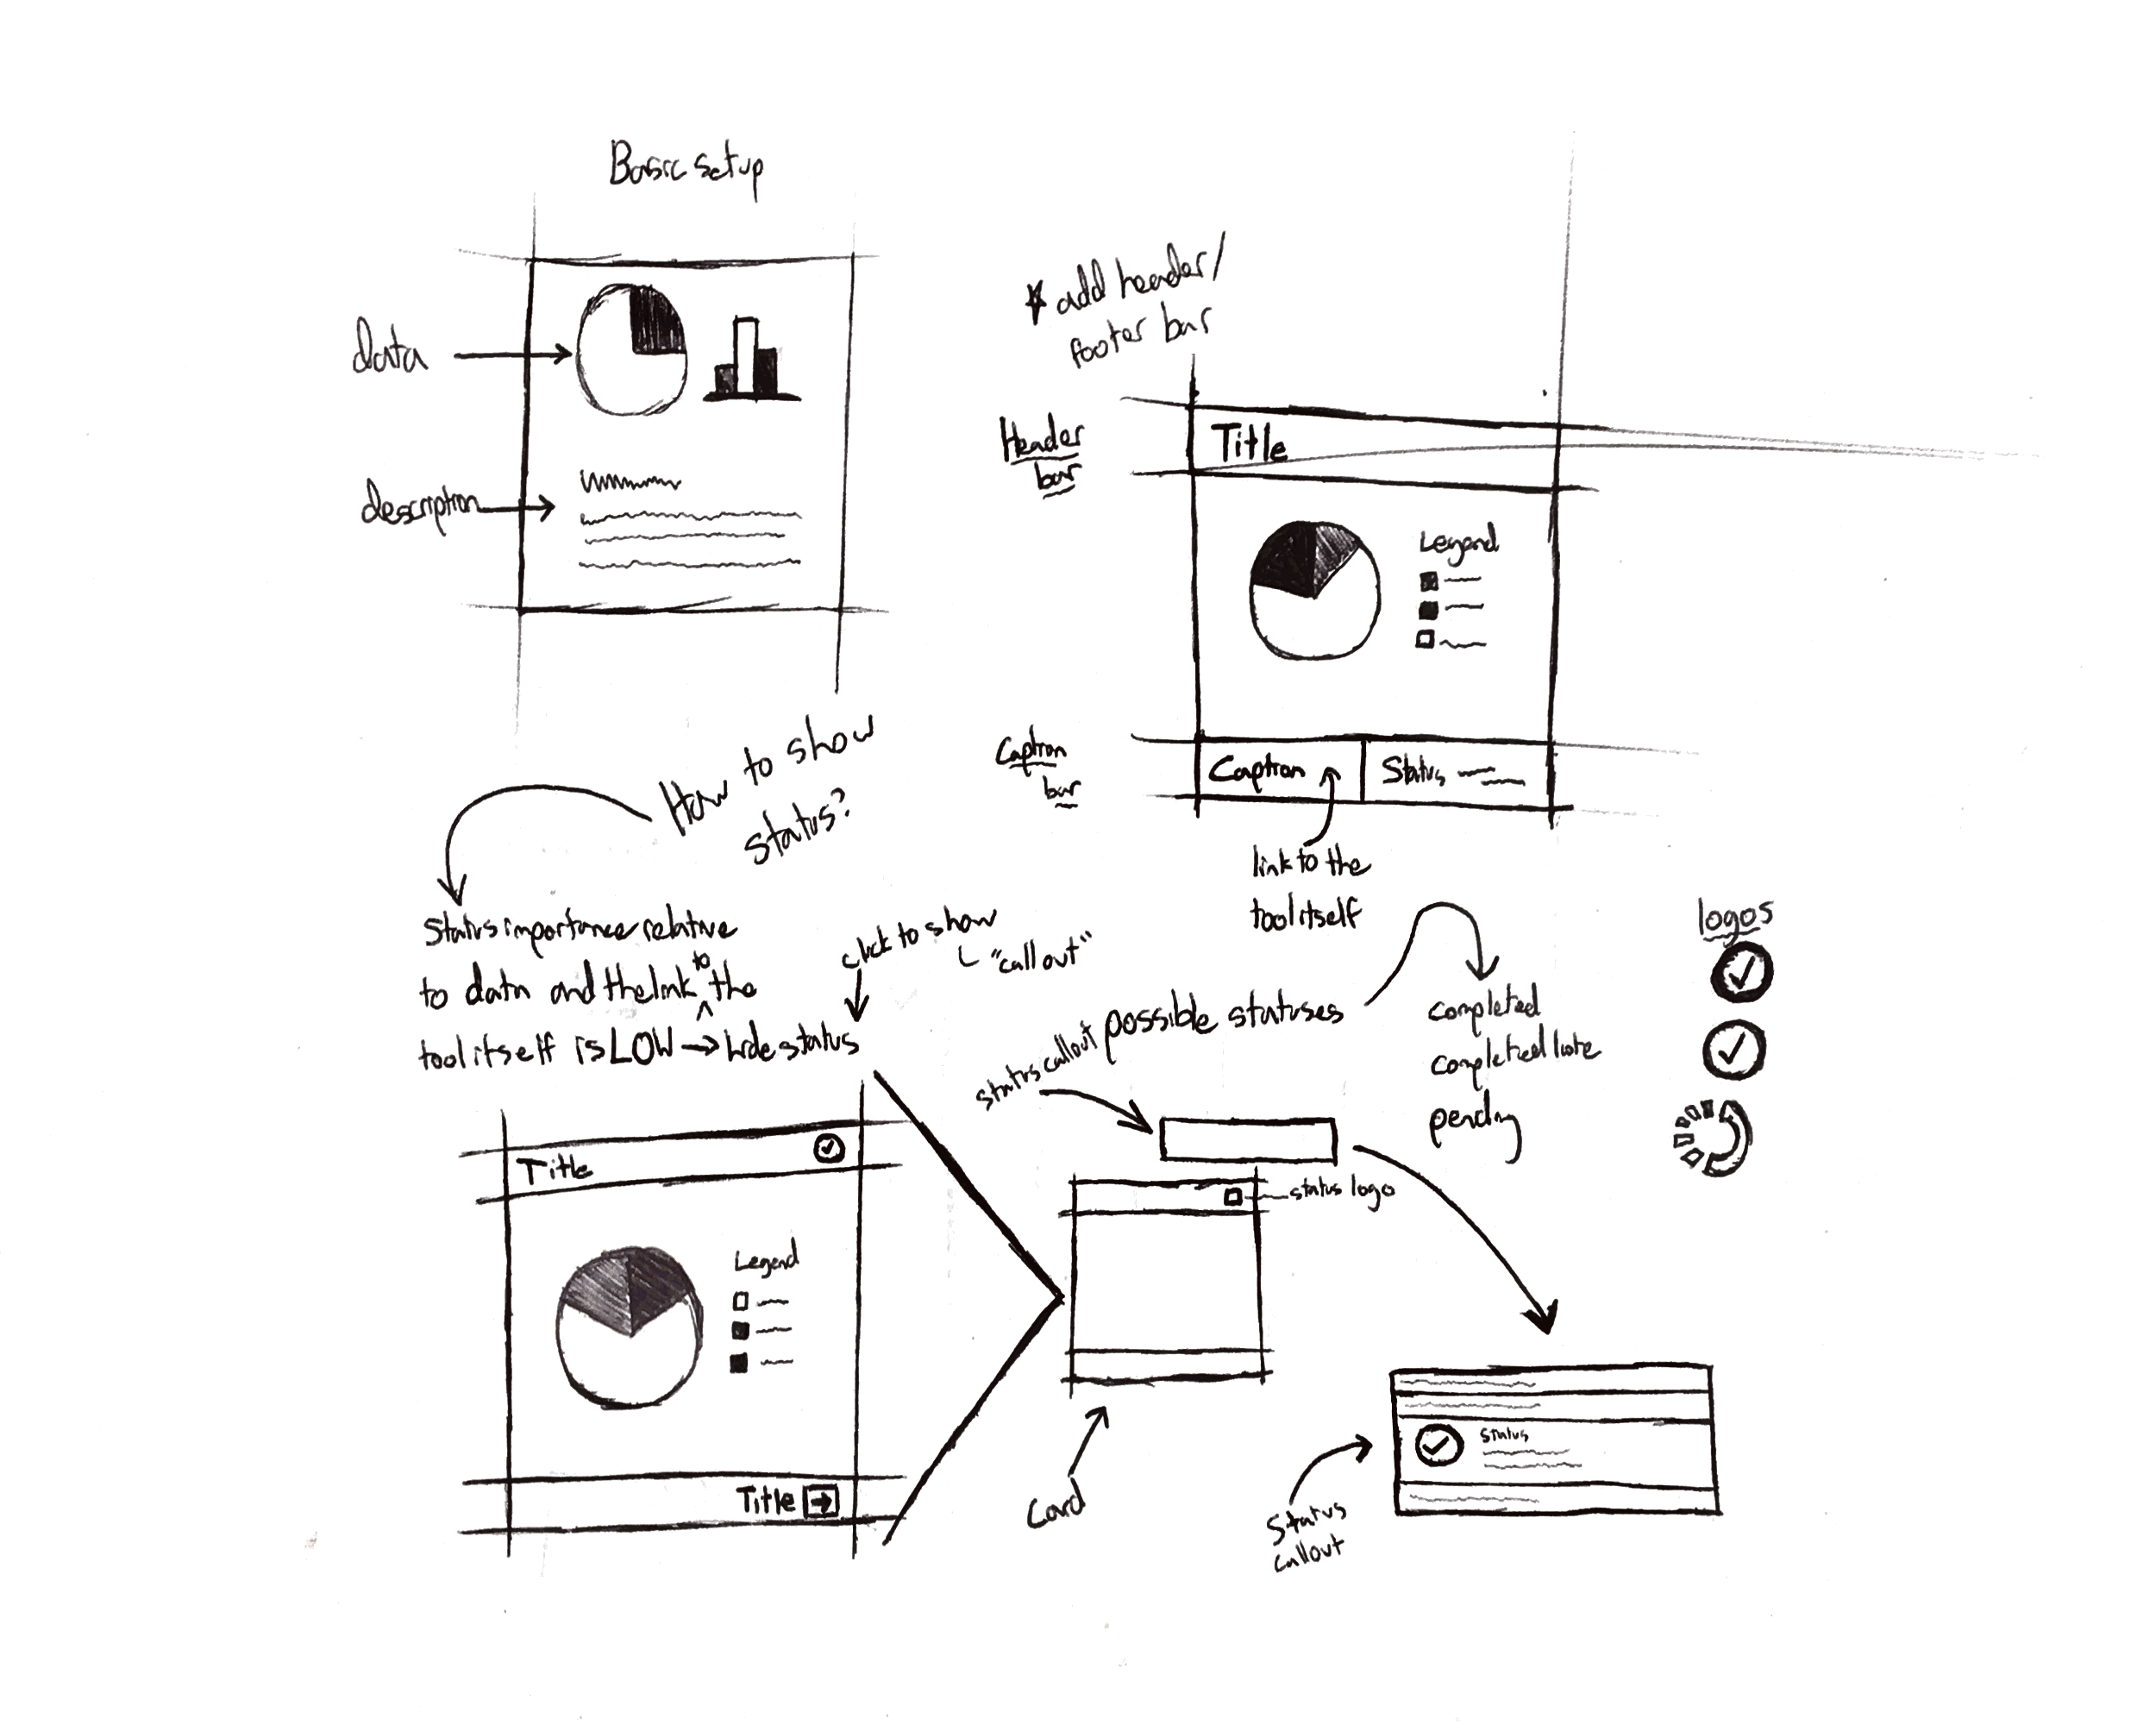 Basic setup
data
description
* add header/
footer bar
Header
bar
Title
Legend
Caption
bar
Caption
Status
link to the
tool itself
How to show
status?
Status importance relative
to data and the link to the
tool itself is LOW → hide status
click to show
"callout"
possible statuses
completed
completed late
pending
logos
status callout
status logo
Card
Title
Legend
Title
Status
Status
callout